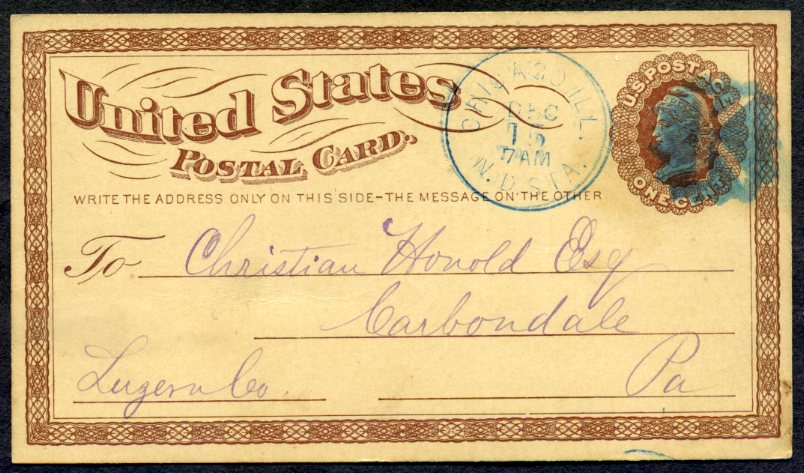 United States
POSTAL CARD.
WRITE THE ADDRESS ONLY ON THIS SIDE–THE MESSAGE ON THE OTHER
CHICAGO ILL.
DEC
7AM
W.D.STA.
U.S. POSTAGE
ONE CENT
To Christian Honold Esq
Carbondale
Luzern Co. Pa